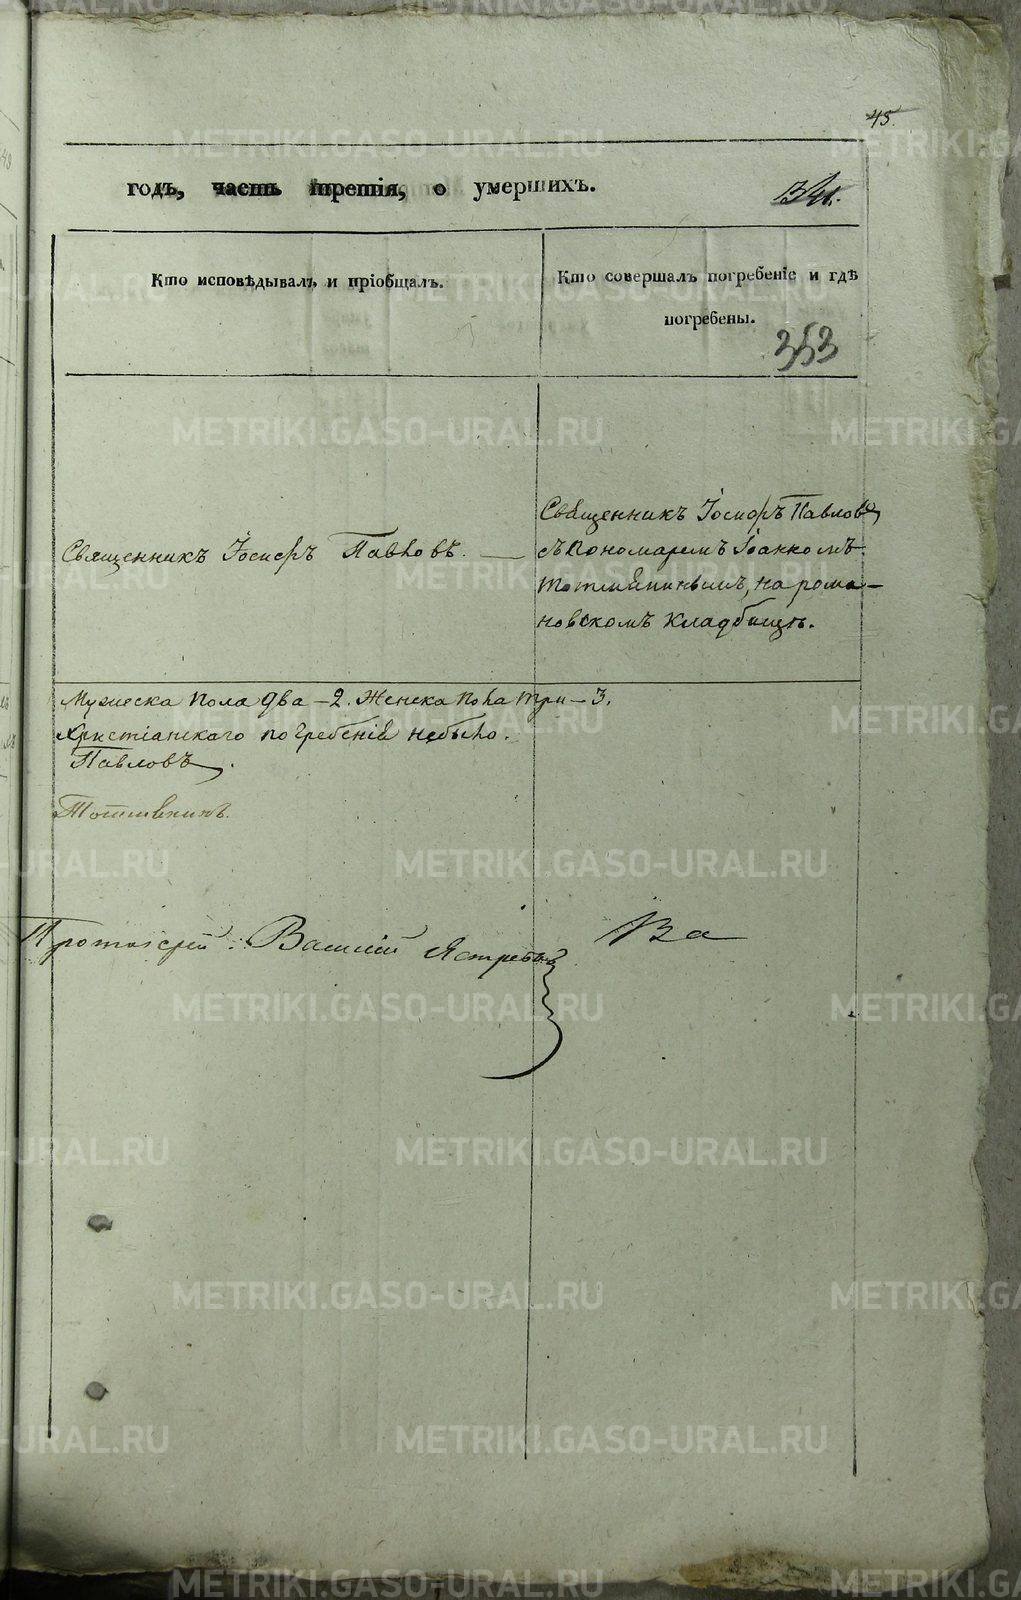 45.
годъ, часть третія, о умершихъ.
1341.
Кто исповѣдывалъ и пріобщалъ.
Кто совершалъ погребеніе и гдѣ
погребены.
353
Священникъ Іосифъ Павловъ. —
Священникъ Іосифъ Павловъ
съ Пономаремъ Іоанномъ
на рома-
новскомъ кладбищѣ.
Мужеска пола два – 2. Женска пола три – 3.
Христіанскаго погребенія небыло.
Павловъ.
Протоіерей: Василій Ястребовъ
METRIKI.GASO-URAL.RU